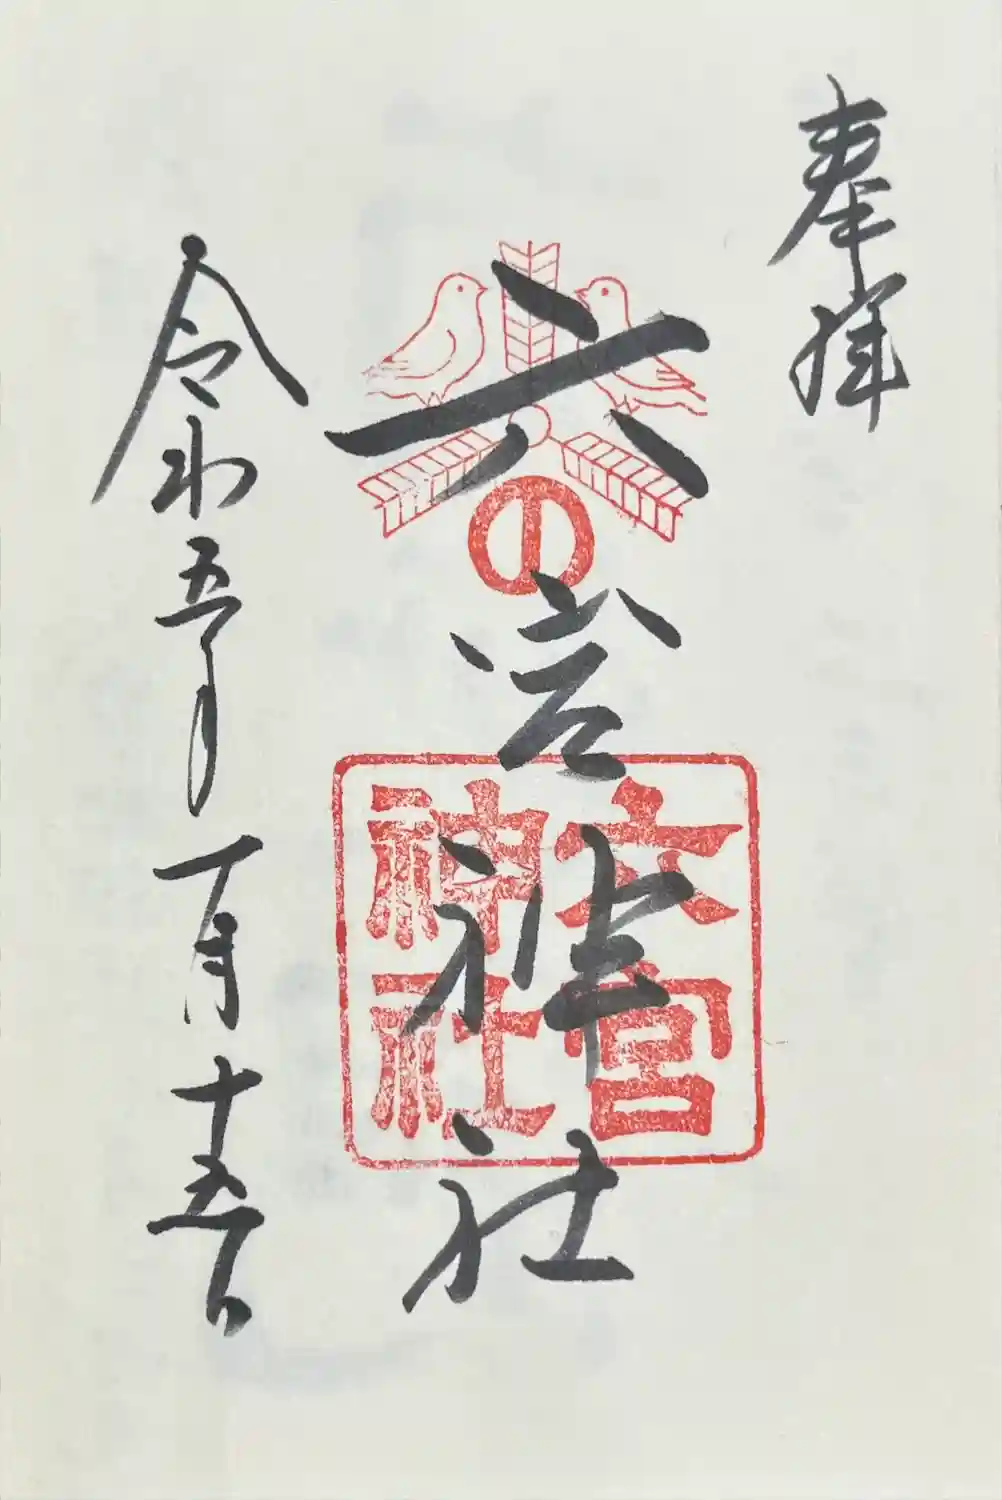 奉拝
六宮神社
の
六宮
神社
令和五年一月十五日